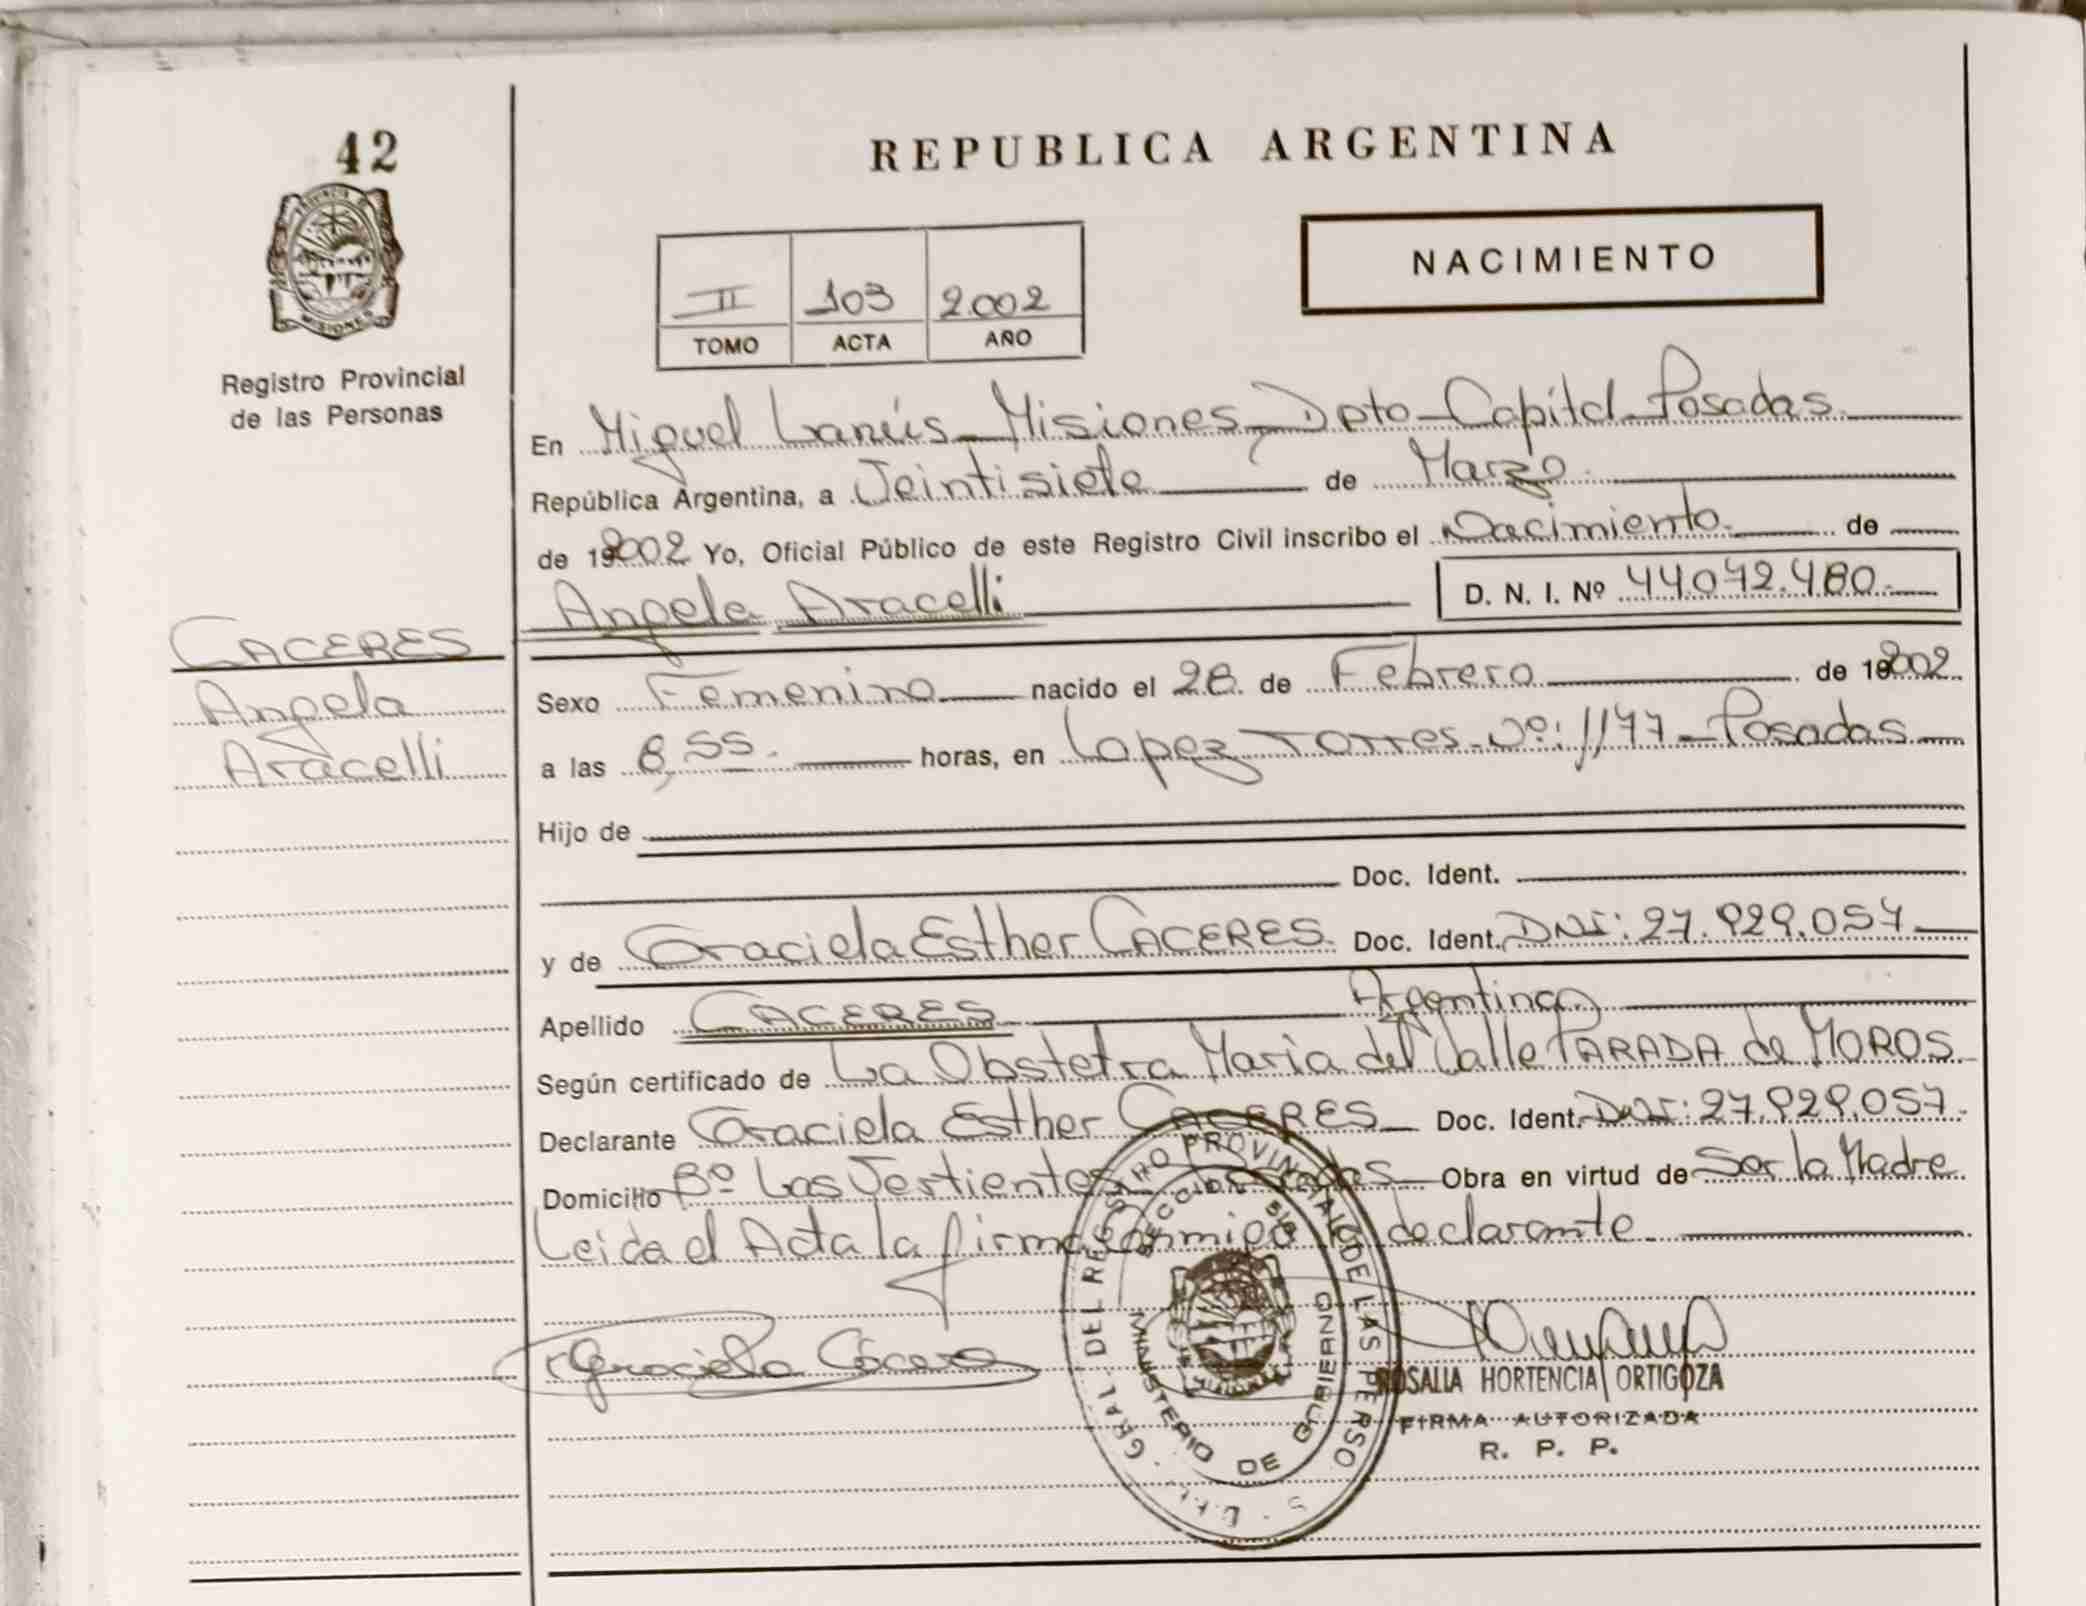 42
REPUBLICA ARGENTINA
NACIMIENTO
II 103 2.002
TOMO ACTA AÑO
PROVINCIA DE
MISIONES
Registro Provincial
de las Personas
En Miguel Lanús Misiones, Dpto Capital Posadas
República Argentina, a Veintisiete de Marzo
de 192002 Yo, Oficial Público de este Registro Civil inscribo el Nacimiento de
Angela Aracelli D. N. I. Nº 44.072.480.
CACERES
Angela
Aracelli
Sexo Femenino nacido el 28 de Febrero de 192002
a las 8,55. horas, en Lopez Torres Nº: 1177 - Posadas
Hijo de
Doc. Ident.
y de Graciela Esther CACERES Doc. Ident. DNI: 27.929.057
Apellido CACERES Argentina
Según certificado de La Obstetra Maria del Valle PARADA de MOROS
Declarante Graciela Esther CACERES Doc. Ident. DNI: 27.929.057
Domicilio Bº Las Vertientes Posadas Obra en virtud de Ser la Madre
Leida el Acta la firma conmigo la declarante
Graciela Cáceres
DEL REGISTRO PROVINCIAL DE LAS PERSO
MINISTERIO DE GOBIERNO
ROSALIA HORTENCIA ORTIGOZA
FIRMA AUTORIZADA
R. P. P.